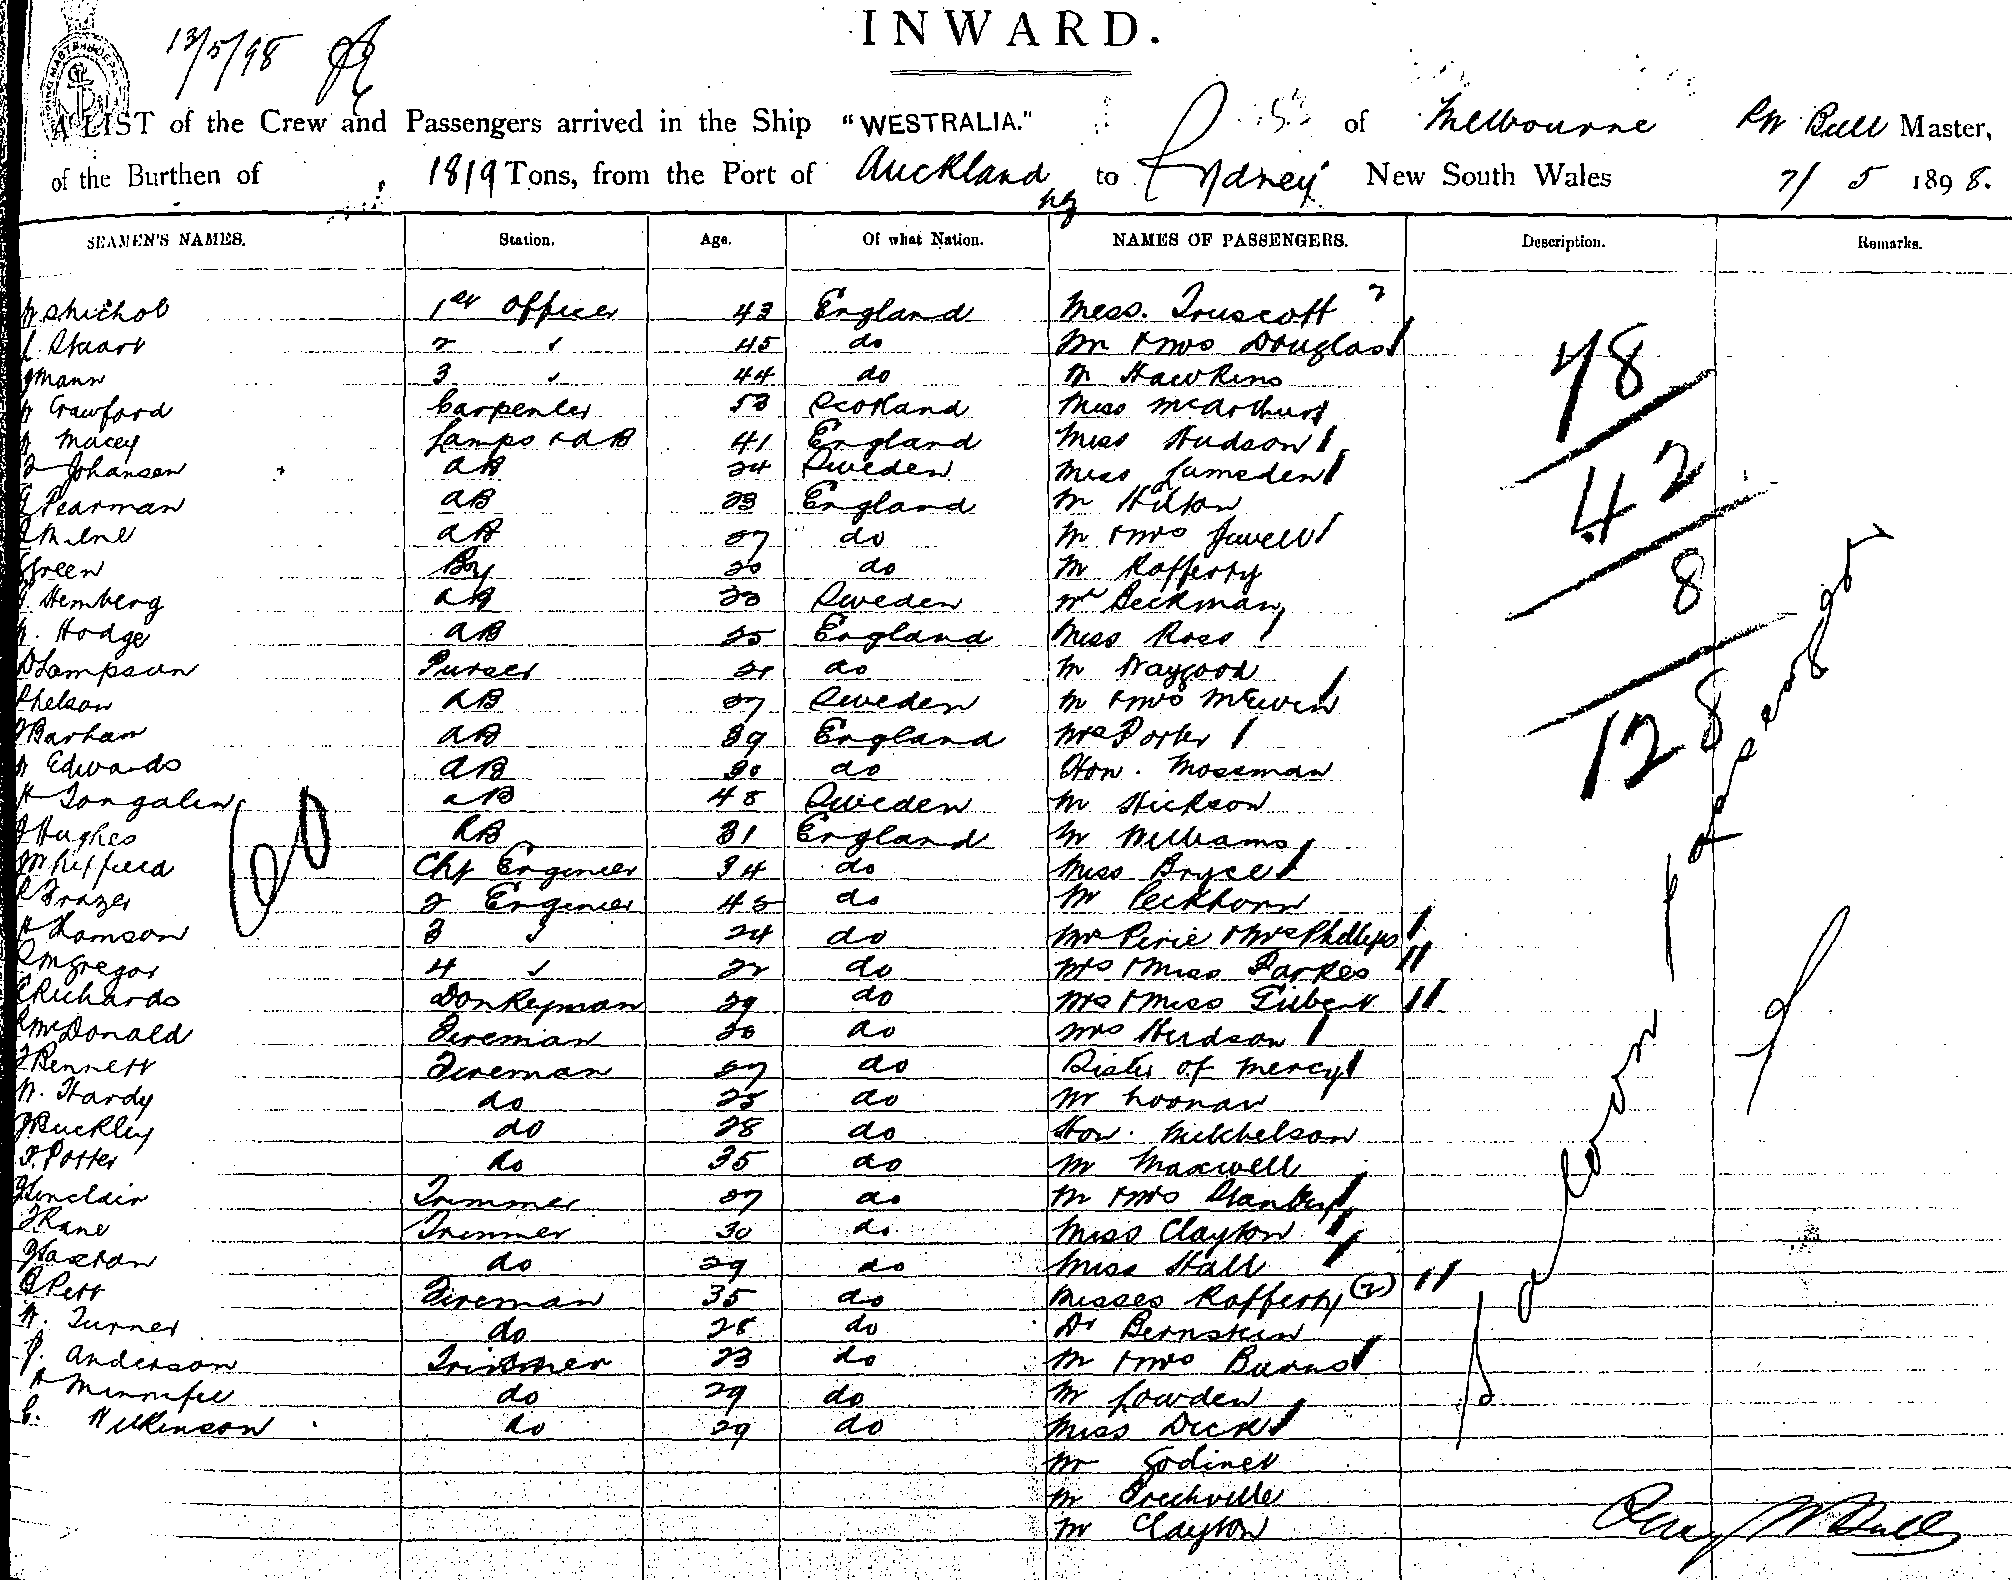 INWARD.
13/5/98
A LIST of the Crew and Passengers arrived in the Ship "WESTRALIA." of Melbourne RW Bull Master,
of the Burthen of 1819 Tons, from the Port of Auckland NZ to Sydney New South Wales 7/5 1898.
SEAMEN'S NAMES. Station. Age. Of what Nation. NAMES OF PASSENGERS. Description. Remarks.
1st Officer 43 England Mess. Truscott 2
Stuart 2 " 45 do Mr & Mrs Douglas
Mann 3 " 44 do Mr Hawkins
Crawford Carpenter 53 Scotland Miss McArthur
Macey Lamps & AB 41 England Miss Hudson
Johansen AB 24 Sweden Miss Lumsden
Pearman AB 23 England Mr Hilton
Milne AB 27 do Mr & Mrs Jewell
Green Boy 20 do Mr Rafferty
Hemberg AB 23 Sweden Mr Beckman
Hodge AB 25 England Miss Ross
Lampson Purser do Mr Waygood
Nelson AB 27 Sweden Mr & Mrs McEwen
Barham AB 39 England Mrs Porter
Edwards AB 30 do Hon. Mossman
AB 48 Sweden Mr Hickson
Hughes AB 31 England Mr Williams
Whiffield Chf Engineer 34 do Miss Bryce
Frazer 2 Engineer 45 do Mr Peckhorn
Thomson 3 " 24 do Mrs Pirie & Mrs Phillips
McGregor 4 " 22 do Mrs & Miss Parkes
Richards Donkeyman 29 do Mrs & Miss Gilbert
McDonald Fireman do Mrs Hudson
Bennett Fireman 27 do Sister of Mercy
W. Hardy do 25 do Mr Noonan
Buckley do 28 do Hon. Mitchelson
F. Potter do 35 do Mr Maxwell
Sinclair Trimmer 27 do Mr & Mrs
Kane Trimmer 30 do Miss Clayton
do 29 do Miss Hall
Pett Fireman 35 do Misses Rafferty (2)
W. Turner do 28 do Dr Bernstein
J. Anderson Trimmer 23 do Mr & Mrs Burns
do 29 do Mr Lowden
C. Wilkinson do 29 do Miss Dick
Mr Godinet
Mr
Mr Clayton
60
48
42
8
128
passengers